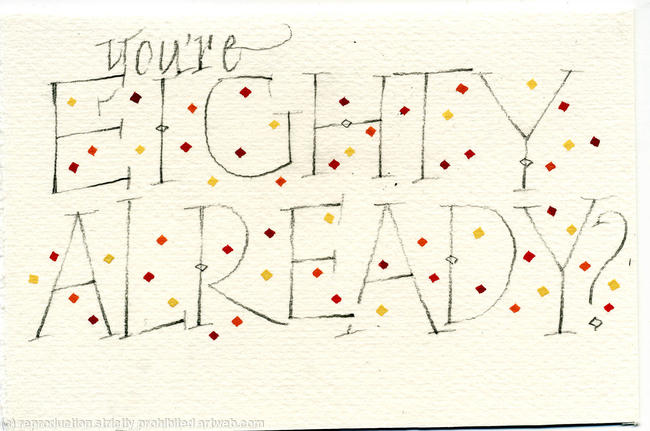 you're
EIGHTY
ALREADY?
(c) reproduction strictly prohibited artweb.com